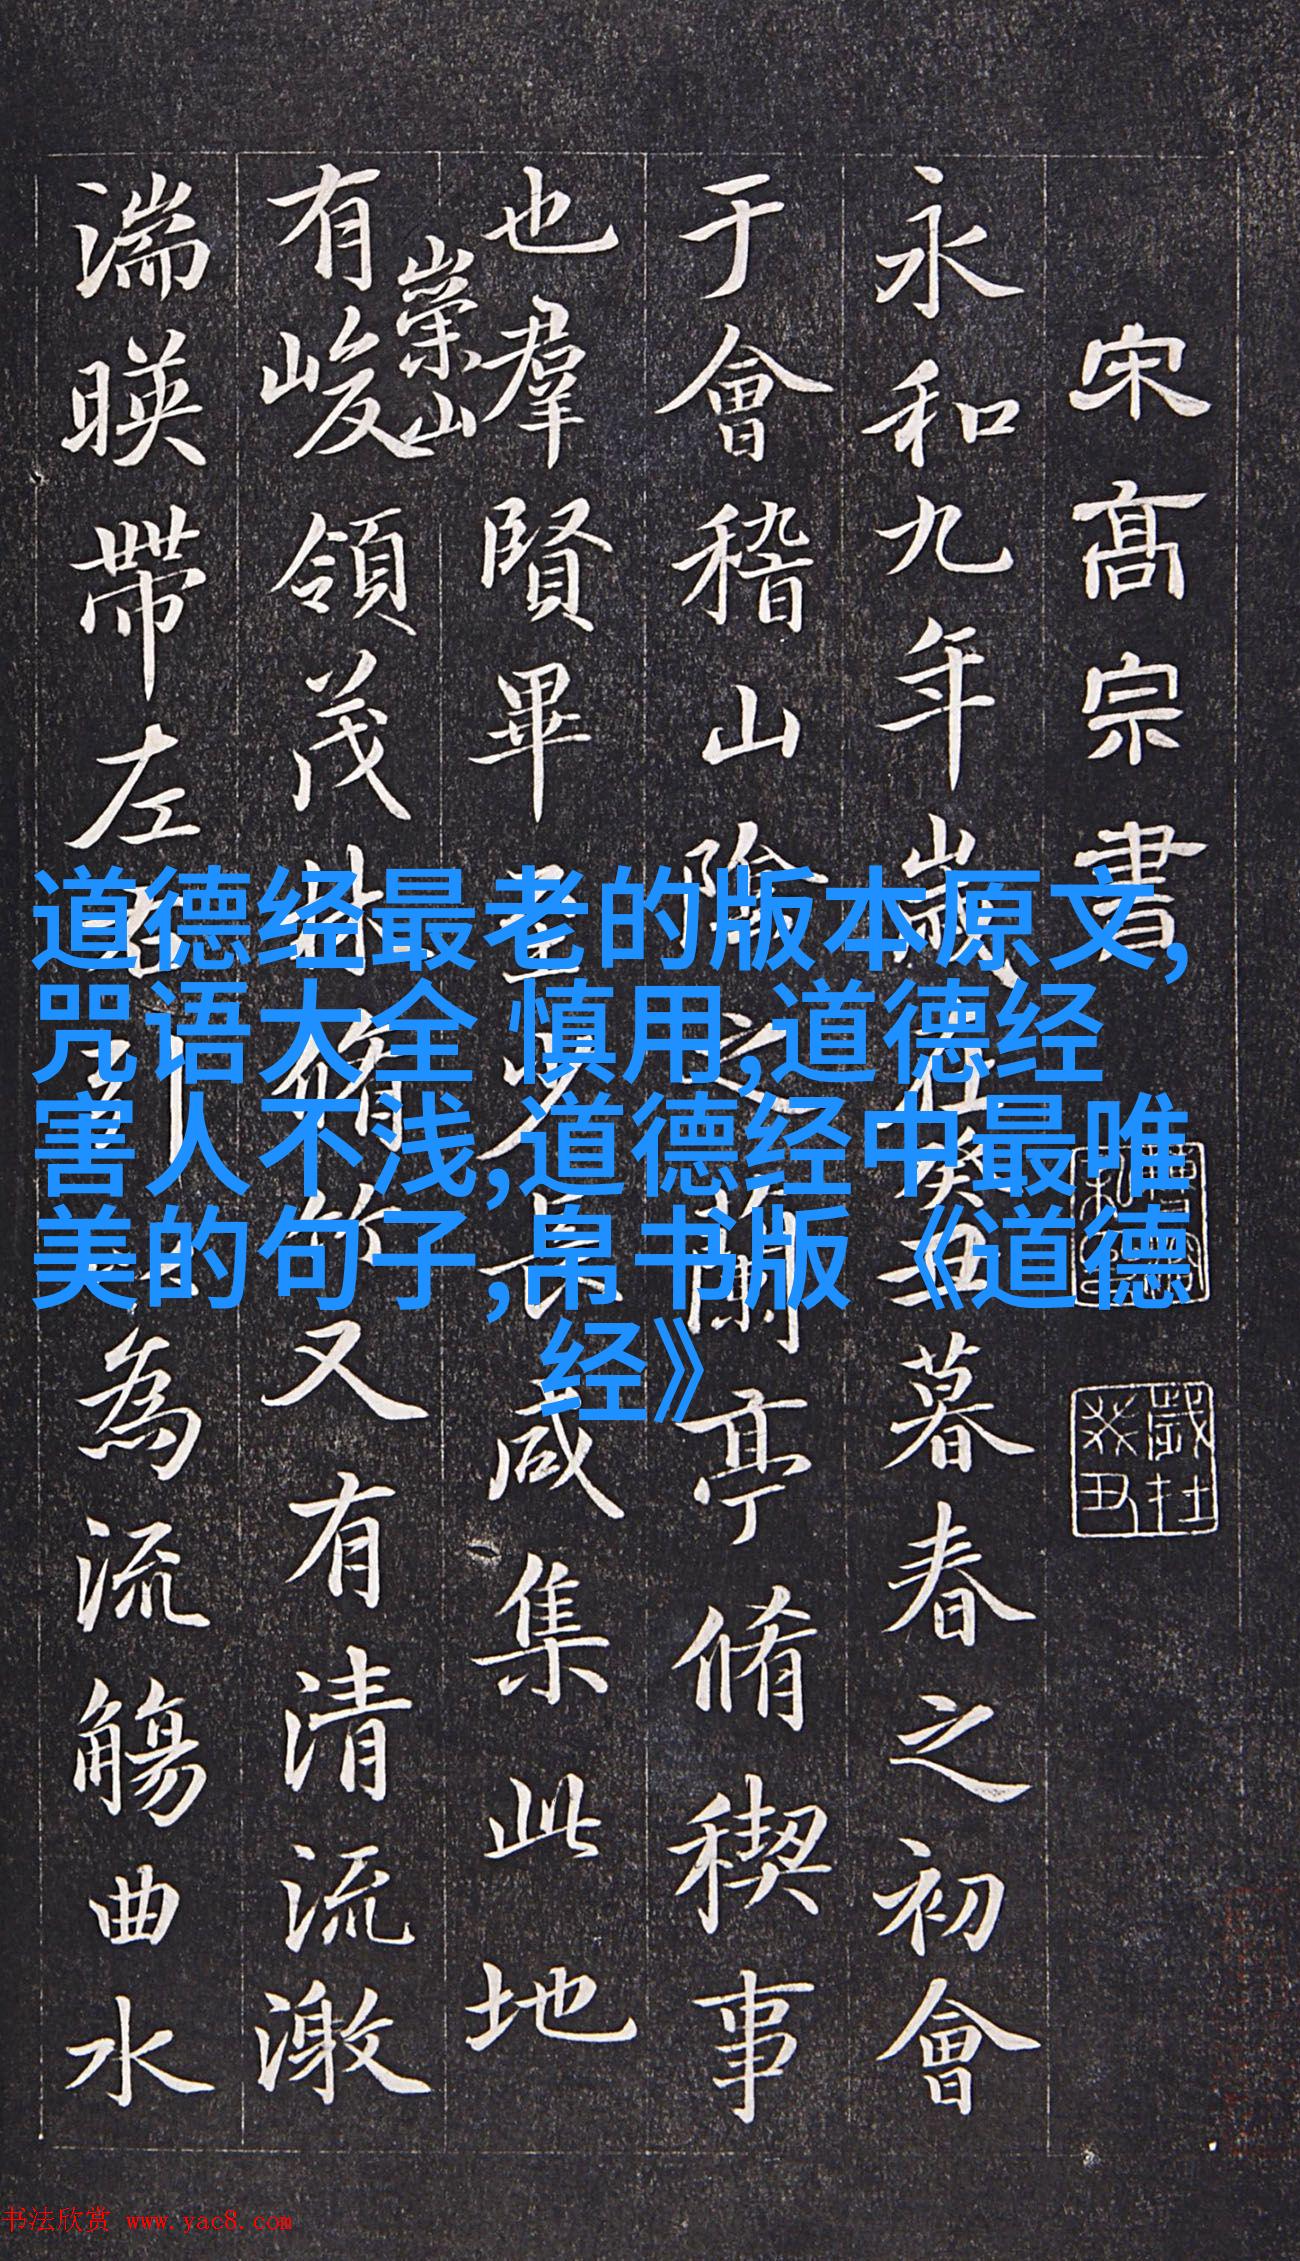 宋高宗書
永和九年歲在癸丑暮春之初會
于會稽山陰之蘭亭脩稧事
也羣賢畢至少長咸集此地
崇山
有峻領茂林脩竹又有清流激
湍暎帶左右引以為流觴曲水
歲在癸丑
道德经最老的版本原文,
咒语大全 慎用,道德经
害人不浅,道德经中最唯
美的句子,帛书版《道德
经》
书法欣赏 www.yac8.com